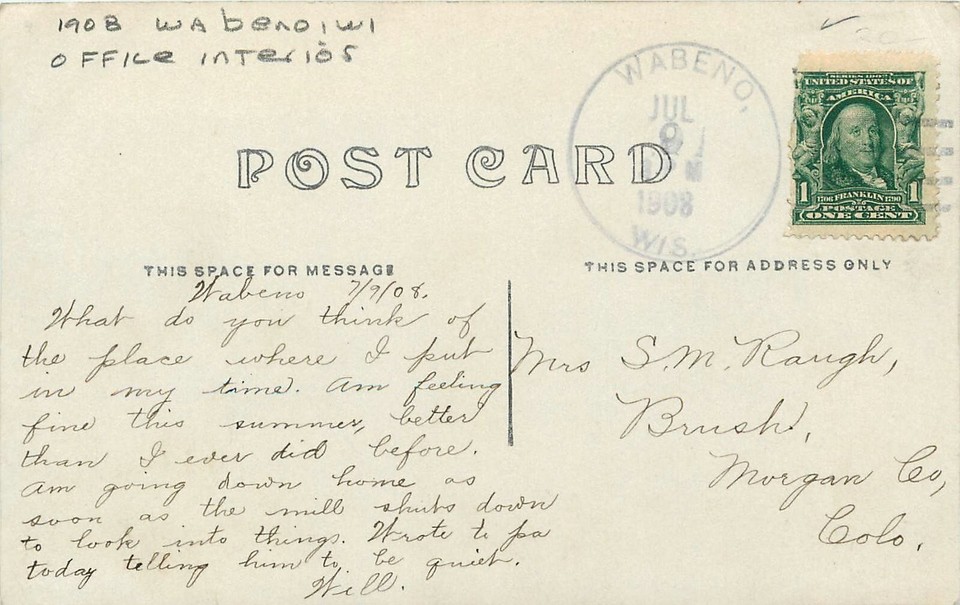 1908 WAbeno, WI
OFFICE INTERIOR
WABENO,
JUL
9
M
1908
WIS.
SERIES 1902
UNITED STATES OF
AMERICA
1 1706 FRANKLIN 1790 1
POSTAGE
ONE CENT
POST CARD
THIS SPACE FOR MESSAGE
THIS SPACE FOR ADDRESS ONLY
Wabeno 7/9/08.
What do you think of
the place where I put
in my time. Am feeling
fine this summer, better
than I ever did before.
Am going down home as
soon as the mill shuts down
to look into things. Wrote to pa
today telling him to be quiet.
Will.
Mrs S.M. Raugh,
Brush,
Morgan Co,
Colo.